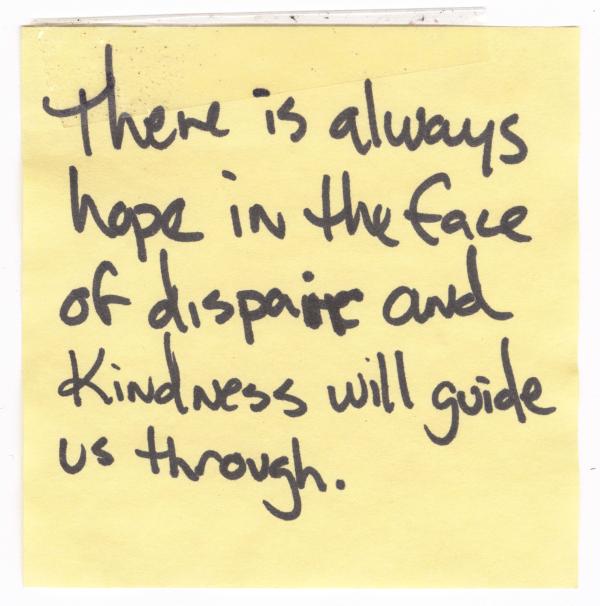 There is always
hope in the face
of dispair and
Kindness will guide
us through.